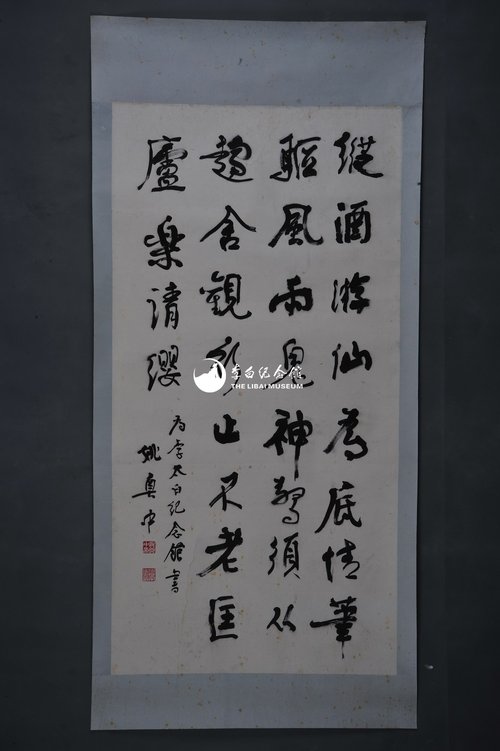 縱酒游仙為底情筆
驅風雨鬼神驚須从
趨舍觀行止不老匡
廬樂請纓
为李太白纪念館書
姚奠中
李白纪念馆
THE LIBAI MUSEUM